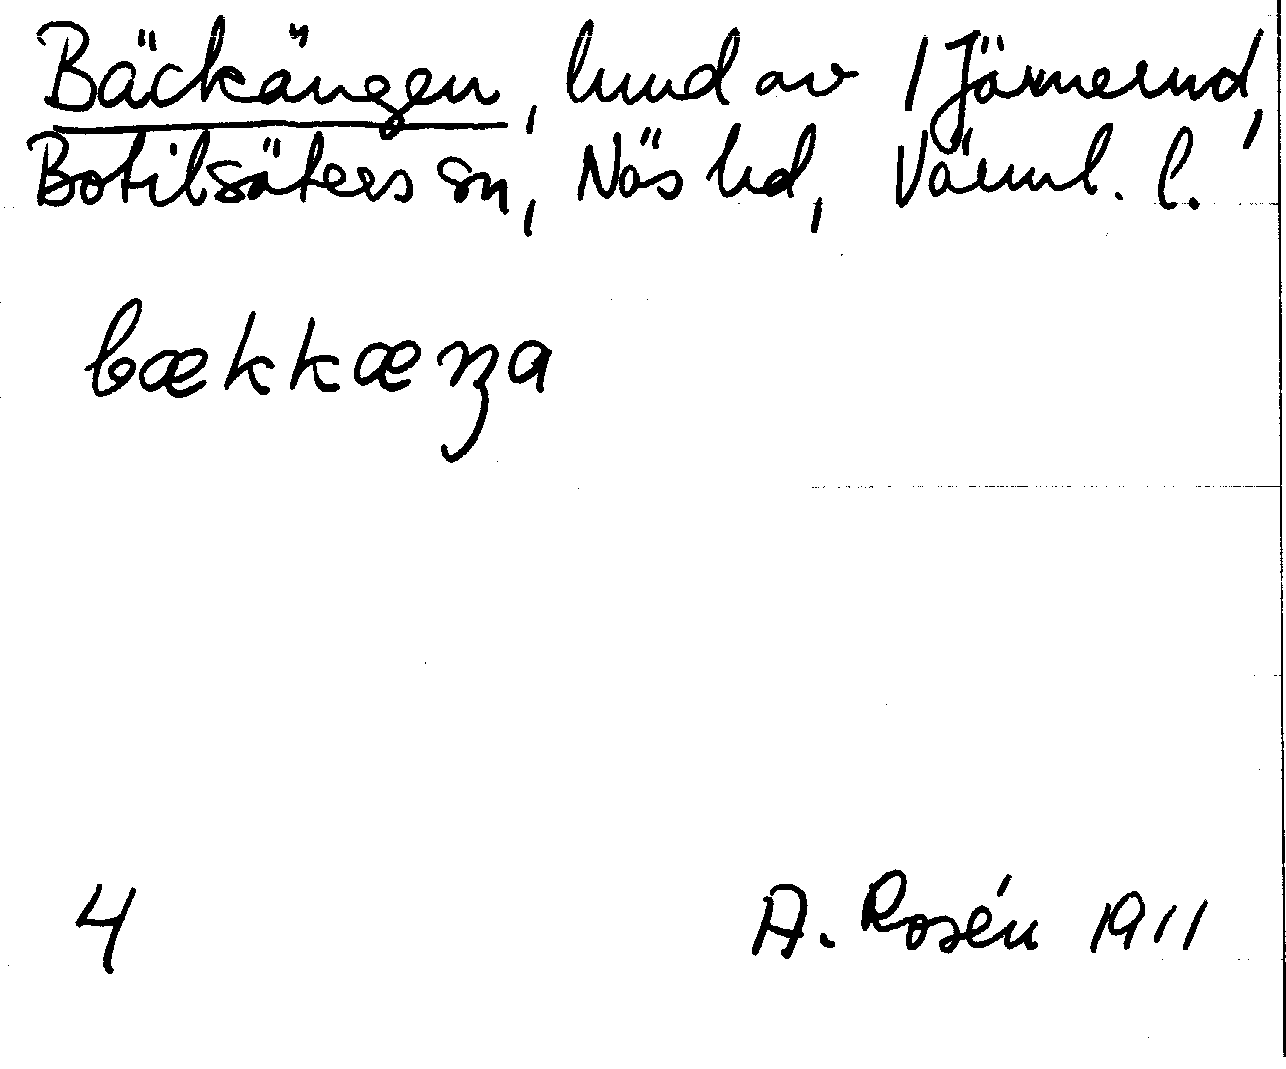 Bäckängen, lund av 1 Järnerud,
Botilsäters sn, Näs hd, Värml. l.
bækkæŋa
4 A. Rosén 1911